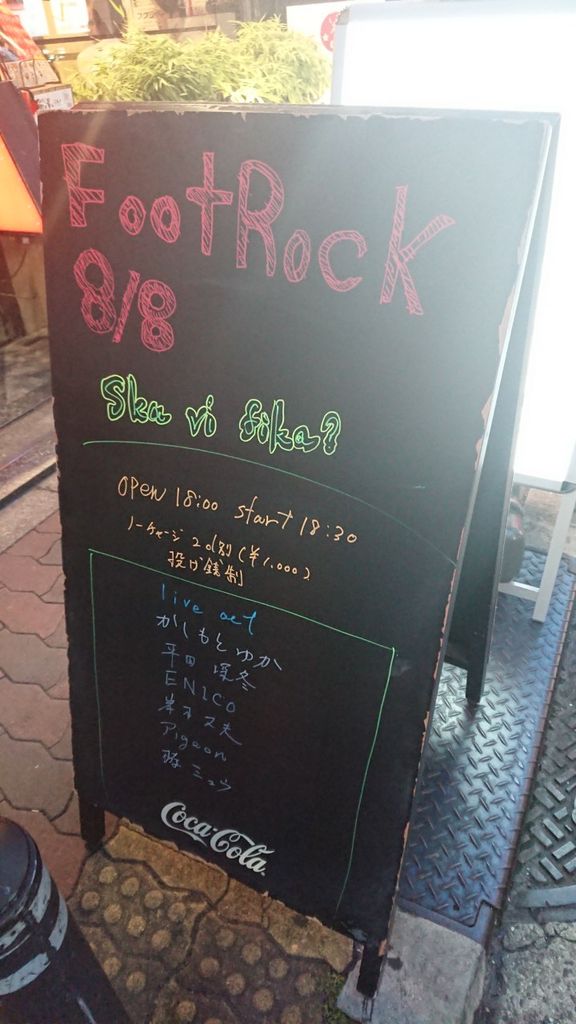 FootRock
8/8
Ska vi fika?
OPEN 18:00 start 18:30
ノーチャージ 2d別(¥1,000)
投げ銭制
live act
かしもとゆか
平田 深冬
ENICO
Pigeon
ミュウ
Coca-Cola